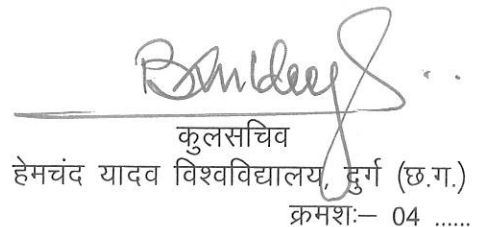 कुलसचिव
हेमचंद यादव विश्वविद्यालय, दुर्ग (छ.ग.)
क्रमशः– 04 ......